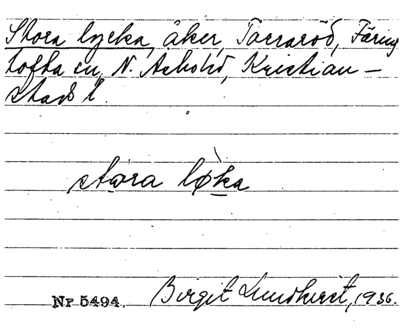 Stora lycka, åker Torraröd, Färing
tofta sn, N. Åsbohd, Kristian-
stads l.
stora løka
Nr 5494. Birgit Lundkvist, 1936.